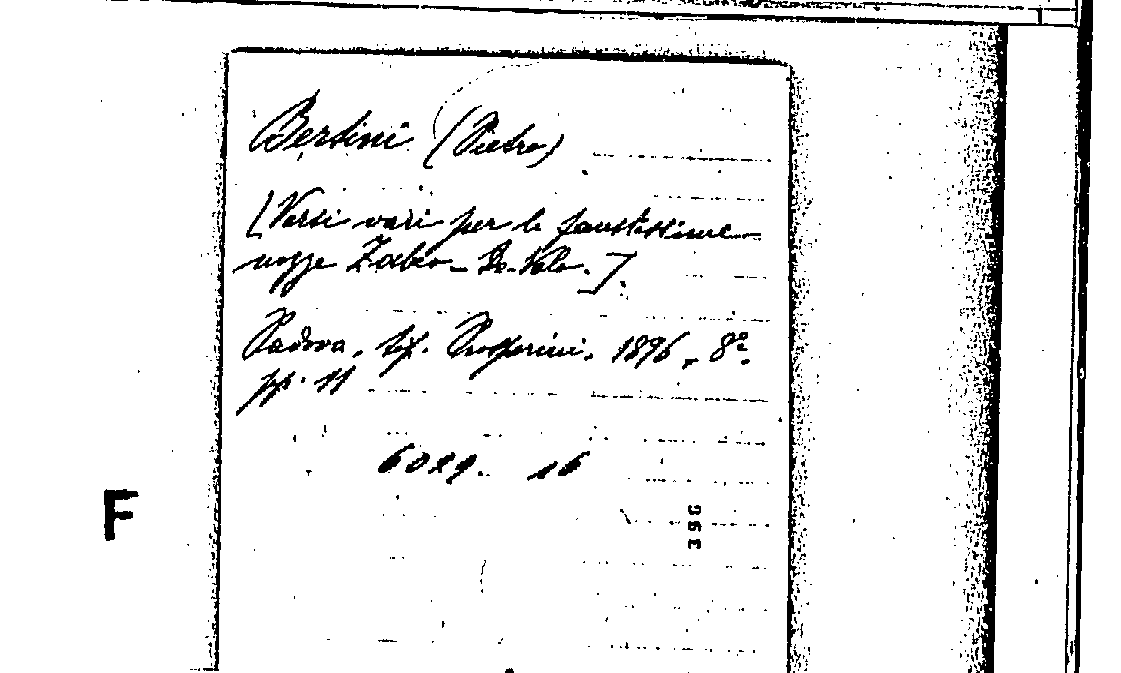 Bertini (Pietro)
[Versi vari per le faustissime
nozze Zabeo - Da Velo.].
Padova, tip. Prosperini, 1896, 8º.
pp. 11
6029. 16
F
390